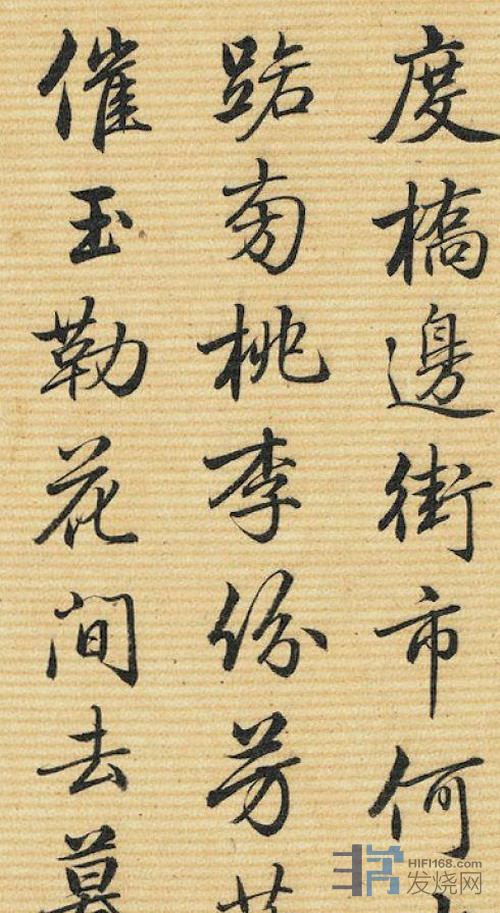 度橋邊街市何
踞南桃李份芳
催玉勒花間去暮
HIFI168.com
发烧网